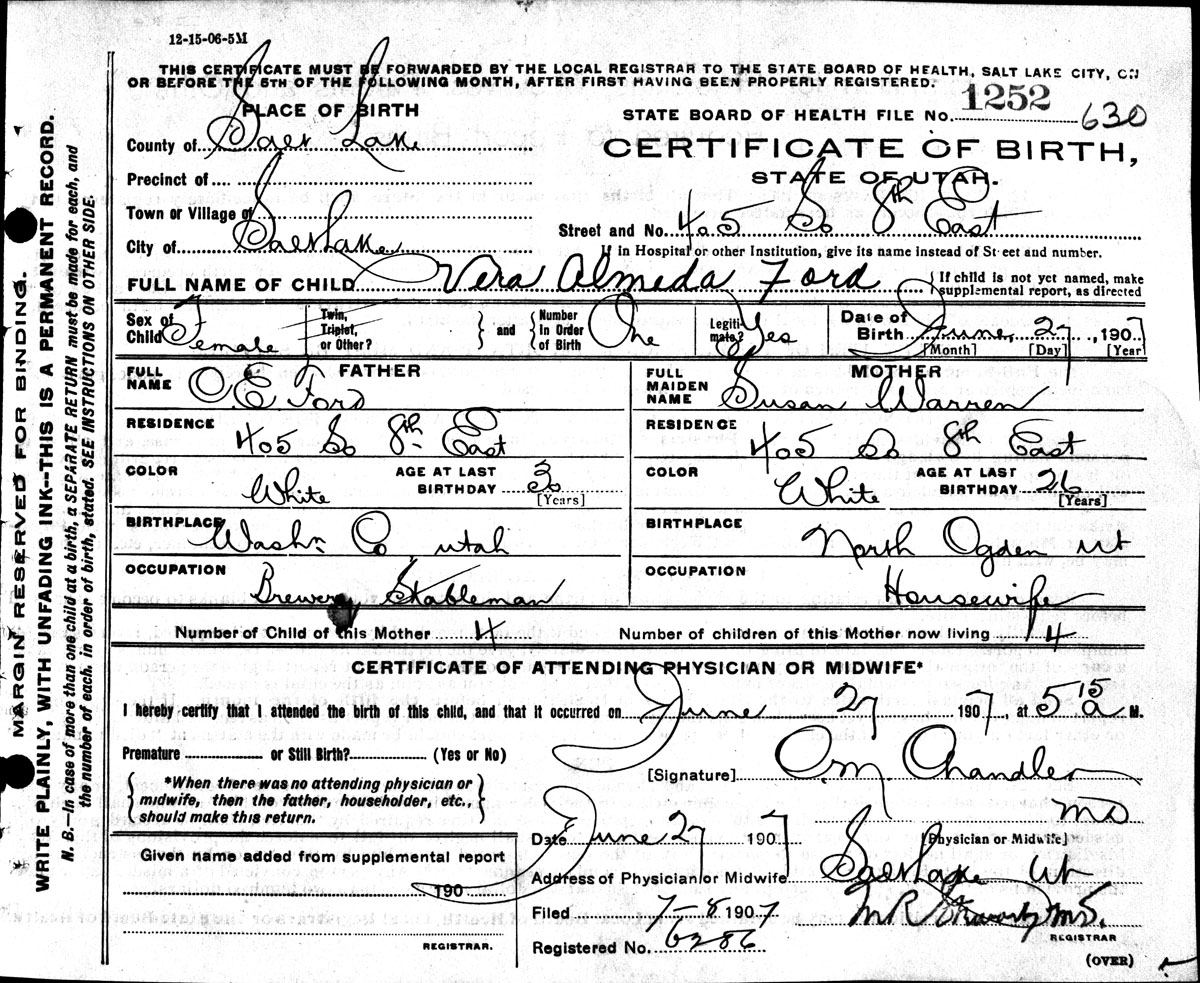 12-15-06-5M
THIS CERTIFICATE MUST BE FORWARDED BY THE LOCAL REGISTRAR TO THE STATE BOARD OF HEALTH, SALT LAKE CITY, ON
OR BEFORE THE 5TH OF THE FOLLOWING MONTH, AFTER FIRST HAVING BEEN PROPERLY REGISTERED.
PLACE OF BIRTH
STATE BOARD OF HEALTH FILE No. 1252 630
County of Salt Lake
CERTIFICATE OF BIRTH,
STATE OF UTAH.
Precinct of
Town or Village of
Street and No. 405 So 8th East
City of Salt Lake
If in Hospital or other Institution, give its name instead of Street and number.
FULL NAME OF CHILD Vera Almeda Ford { If child is not yet named, make
supplemental report, as directed
Sex of Child Female
Twin, Triplet, or Other? } and { Number in Order of Birth One
Legitimate? Yes
Date of Birth June 27, 1907
[Month] [Day] [Year]
FATHER
FULL NAME O. E. Ford
RESIDENCE 405 So 8th East
COLOR White AGE AT LAST BIRTHDAY
[Years]
BIRTHPLACE Washn Co utah
OCCUPATION Brewery Stableman
MOTHER
FULL MAIDEN NAME Susan Warren
RESIDENCE 405 So 8th East
COLOR White AGE AT LAST BIRTHDAY 26
[Years]
BIRTHPLACE North Ogden Ut
OCCUPATION Housewife
Number of Child of this Mother 4 Number of children of this Mother now living 4
CERTIFICATE OF ATTENDING PHYSICIAN OR MIDWIFE*
I hereby certify that I attended the birth of this child, and that it occurred on June 27 1907, at 5 15 a M.
Premature or Still Birth? (Yes or No)
{ *When there was no attending physician or
midwife, then the father, householder, etc., }
should make this return.
[Signature] O. M. Chandler
MD
[Physician or Midwife]
Date June 27 1907
Address of Physician or Midwife Salt Lake Ut
Filed 7-8 1907
Registered No. 6286
M.D.
REGISTRAR
(OVER)
Given name added from supplemental report
190
REGISTRAR.
MARGIN RESERVED FOR BINDING.
WRITE PLAINLY, WITH UNFADING INK---THIS IS A PERMANENT RECORD.
N. B.—In case of more than one child at a birth, a SEPARATE RETURN must be made for each, and
the number of each, in order of birth, stated. SEE INSTRUCTIONS ON OTHER SIDE.